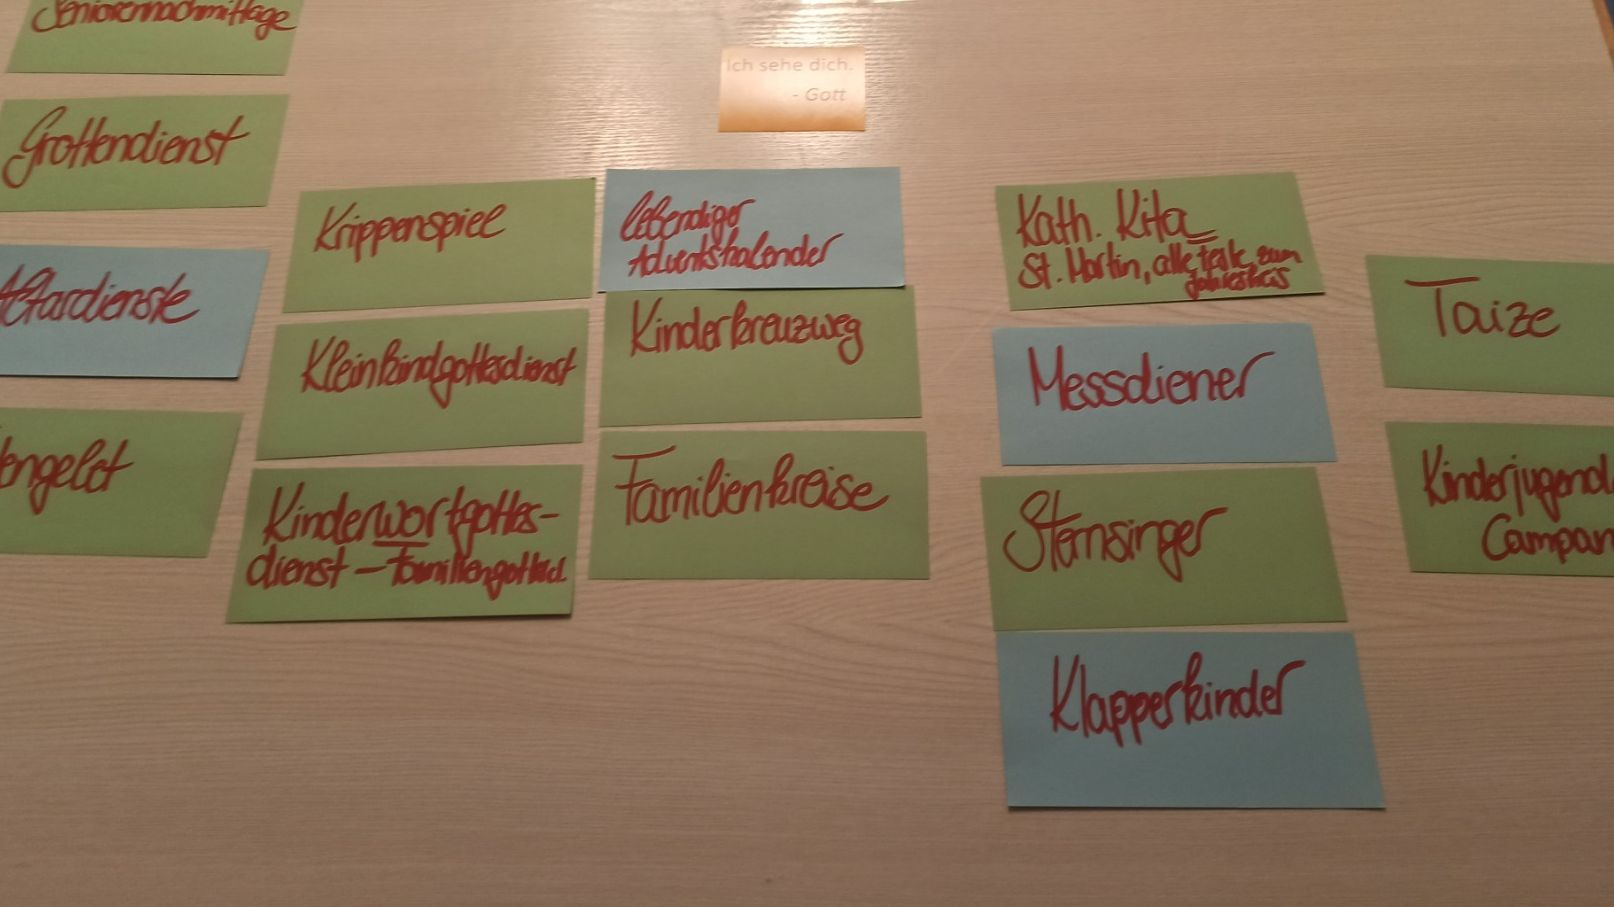 Seniorennachmittage
Grottendienst
Altardienste
engeld
Krippenspiel
Kleinkindgottesdienst
Kinderwortgottes-
dienst – Familiengottesd.
Ich sehe dich.
- Gott
lebendiger
Adventskalender
Kinderkreuzweg
Familienkreise
Kath. Kita
St. Martin, alle Feste zum
Jahreskreis
Messdiener
Sternsinger
Klapperkinder
Taize
Kinderjugend
Campan